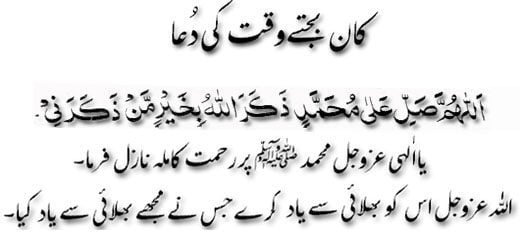 کان بجتے وقت کی دُعا
اَللّٰهُمَّ صَلِّ عَلٰى مُحَمَّدٍ ذَكَرَ اللّٰهُ بِخَيْرٍ مَّنْ ذَكَرَنِيْ.
یا الٰہی عزوجل محمد ﷺ پر رحمت کاملہ نازل فرما۔
اللہ عزوجل اس کو بھلائی سے یاد کرے جس نے مجھے بھلائی سے یاد کیا۔